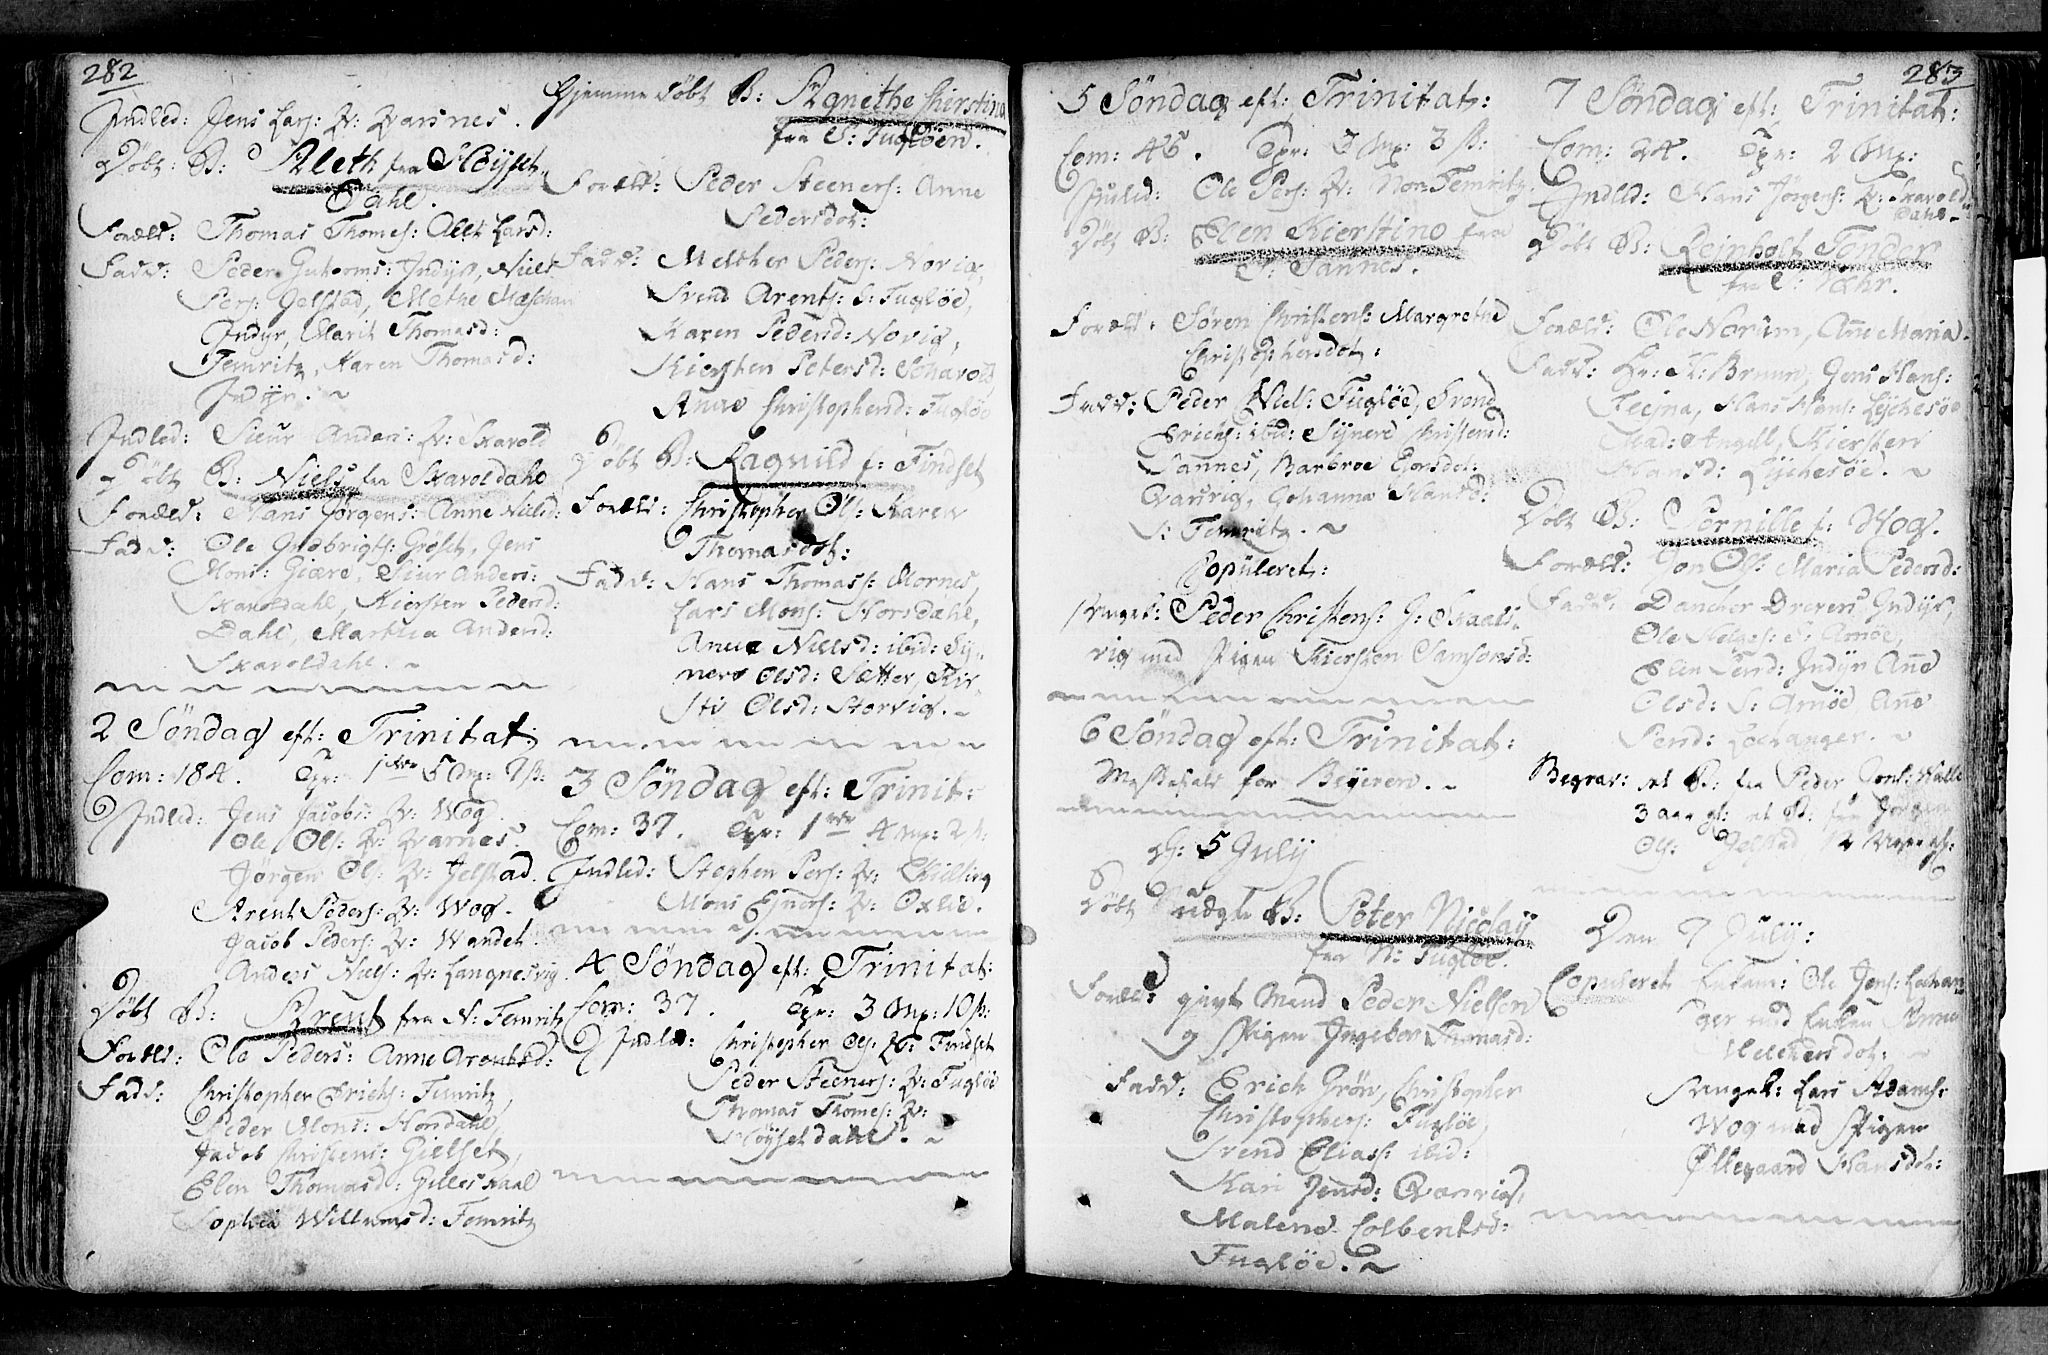 282
Indled: Jens Lars: Q: Qvarsnes.
Døbt: B: Aleth fra Høyset-
Dahl.
Foræld: Thomas Thomes: Alet Larsd:
Fadd: Peder Gutorms: Indyr, Niels
Pers: Jelstad, Methe
Indyr, Marit Thomasd:
Femritz, Karen Thomasd:
Indyr. ~
Indled: Siur Anders: Q: Skarold
Døbt B: Niels fra Skaroldahl
Foræld: Hans Jørgens: Anne Nielsd:
Fadd: Ole Gudbrigts: Groset, Jens
Mons: Giære, Siur Anders:
Skaroldahl, Kiersten Pedersd:
Dahl, Martha Andersd:
Skaroldahl. ~
2 Søndag eft: Trinitat:
Com: 184. Tpr: 1 5 Mx: 7 ß:
Indled: Jens Jacobs: Q: Wog
Ole Ols: Q: Qvarnes.
Jørgen Ols: Q: Jelstad.
Arent Peders: Q: Wog.
Jacob Peders: Q: Wandet.
Anders Niels: Q: Langnesvig.
Døbt B: Arent fra N: Femritz
Foræld: Ole Peders: Anne Arentsd:
Fadd: Christopher Erichs: Femritz,
Peder Mons: Nordahl,
Jacob Christens: Gielset,
Elen Thomasd: Gilleskaal
Sophia Willumsd: Femritz
Hjemme døbt B: Agnethe Chirstina
fra S: Fugløen.
Foræld: Peder Steeners: Anne
Pedersdot:
Fadd: Melcher Peders: Norvig,
Svend Arents: S: Fugløe,
Karen Pedersd: Norvig,
Kiersten Petersd: Skarold,
Anne Christophersd: Fugløe
Døbt B: Ragnild f: Findset
Foræld: Christopher Ols: Karen
Thomasdot:
Fadd: Hans Thomass: Mornes,
Lars Mons: Norsdahl,
Anne Nielsd: ibid: Sy-
nere Olsd: Sætter, Kir-
sti Olsd: Storvig. ~
3 Søndag eft: Trinit:
Com: 37. Tpr: 1 4 Mx: 2 ß:
Indled: Stephen Pers: Q: Kielling
Mons Ejners: Q:
4 Søndag eft: Trinitat:
Com: 37. Tpr: 3 Mx: 10 ß:
Indled: Christopher Ols: Q: Findset
Peder Steeners: Q: Fugløe
Thomas Thomes: Q:
Høysetdahl. ~
283
5 Søndag eft: Trinitat:
Com: 46. Tpr: 3 Mx: 3 ß:
Indled: Ole Pers: Q: Nor Femritz
Døbt B: Elen Kierstine fra
S: Sannes.
Foræld: Søren Christens: Margrethe
Christophersdot:
Fadd: Peder Niels: Fugløe, Trond
Erichs: ibid: Synere Christensd:
Sannes, Barbroe Ejorsdot:
Qvarsvig, Johanna Hansd:
S: Femritz. ~
Copuleret:
Peder Christens: G: Skaals-
vig med Pigen Kiersten Samsonsd:
6 Søndag eft: Trinitat:
Messefald for Beyeren. ~
d: 5 July
Døbt uægte B: Peter Nicolay
fra N: Fugløe.
Foræld: givt Mand Peder Nielsen
og Pigen Ingebor Thomasd:
Fadd: Erich Grøn, Christopher
Christophers: Fugløe,
Svend Elias: ibid:
Kari Jensd: Qvarsvig,
Malene Colbentsd:
Fugløe. ~
7 Søndag eft: Trinitat:
Com: 24. Tpr: 2 Mx:
Indled: Hans Jørgens: Q: Skarold
Dahl ~
Døbt B: Reinholt Tønder
fra
Foræld: Ole Norum, Ane Maria.
Fadd: Hr: H: Bruun, Jens Hans:
Hans Hans: Lychesøe
Mad: Angell, Kiersten
Hansd: Lychesøe. ~
Døbt B: Pernille f: Wog.
Foræld: Jon Ols: Maria Pedersd:
Fadd: Dancher Drejers Indyr,
Ole S: Arnøe,
Elen Persd: Indyr Ane
Olsd: S: Arnøe, Ane
Persd: Lochanger. ~
Begrav: et B: fra Peder
3 aar gl: et B: fra Jørgen
Ols: Jelstad
Den 7 July:
Copuleret Enkem: Ole Jens: Lochan-
ger med Enken Anne
Melchersdot: ~
Lars Adams:
Wog med Pigen
Øllegaard Hansdot: